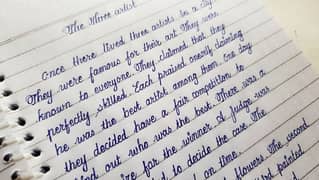 The three artist
Once there lived three artists in a city
They were famous for their art They were
known to everyone. They claimed that they
perfectly skilled. Each praised oneself claiming
he was the best artist among them. One day
they decided have a fair competition to
out who was the best. There was a
for the winner. A judge was
to decide the case. The
on time.
flowers. The second
painted